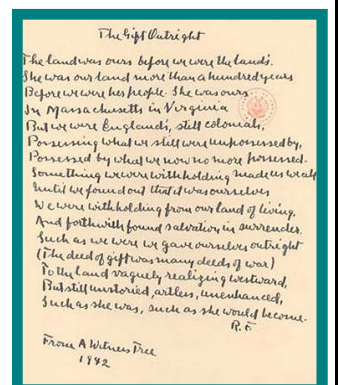 The Gift Outright
The land was ours before we were the land's.
She was our land more than a hundred years
Before we were her people. She was ours
In Massachusetts in Virginia
But we were England's, still colonials,
Possessing what we still were unpossessed by,
Possessed by what we now no more possessed.
Something we were withholding made us weak
Until we found out that it was ourselves
We were withholding from our land of living,
And forthwith found salvation in surrender.
Such as we were we gave ourselves outright
(The deed of gift was many deeds of war)
To the land vaguely realizing westward,
But still unstoried, artless, unenhanced,
Such as she was, such as she would become.
R.F.
From A Witness Tree
1942